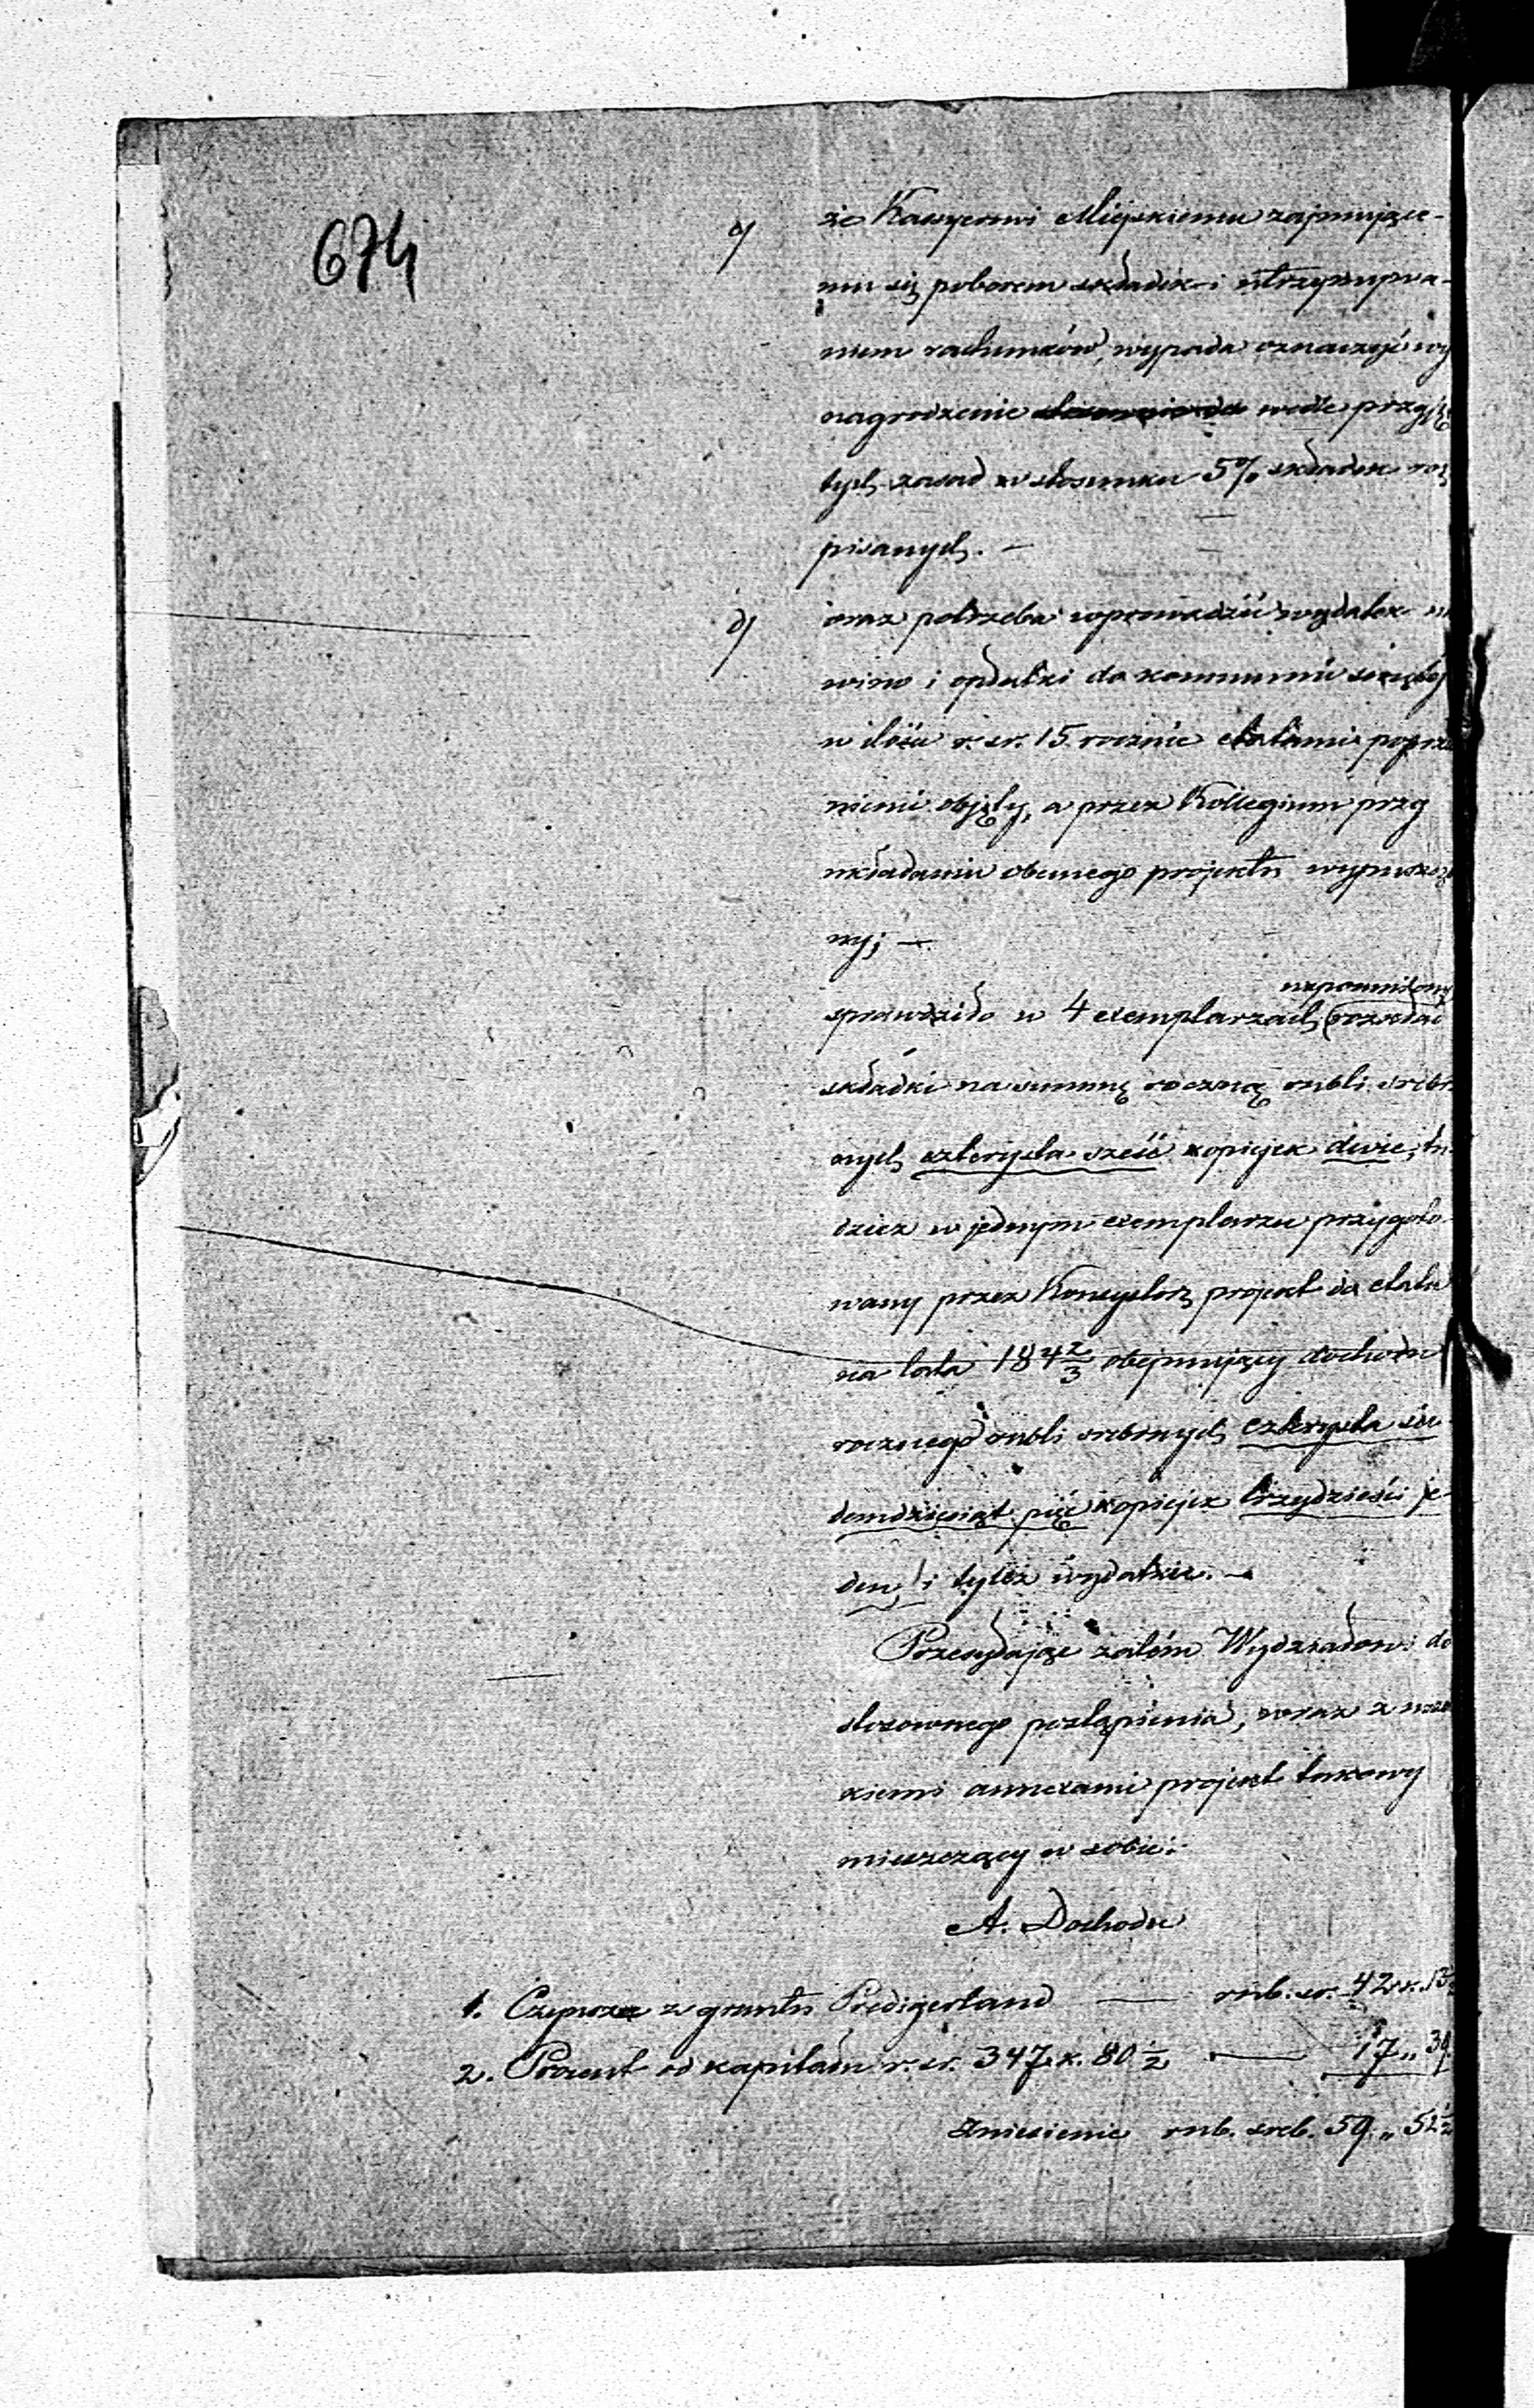 674
c/ że Kassyerowi Miejskiemu zajmujące-
mu się poborem składek i utrzymywa-
niem rachunków, wypada oznaczyć wy
nagrodzenie wedle przyję
tych zasad w stosunku 5% składek roz
pisanych. —
d/ oraz potrzeba wprowadzić wydatek na
wino i opłatki do kommunii świętej
w ilości r. sr. 15 rocznie etatami poprze
dniemi objęty, a przez Kollegium przy
układaniu obecnego projektu wypuszczo
ny; —
wspomniony
sprawdziło w 4 exemplarzach rozkład
składki na summę roczną rubli srebr
nych czterysta sześć kopiejek dwie, tu
dzież w jednym exemplarzu przygoto-
wany przez Konsystorz projekt do etatu
na lata 184 2/3 obejmujący dochodu
rocznego rubli srebrnych czterysta sie
demdziesiąt pięć kopiejek trzydzieści je-
den, i tyleż wydatków. —
Przesyłając zatém Wydziałowi do
stosownego postąpienia, wraz z wszel
kiemi annexami projekt takowy
mieszczący w sobie:
A. Dochodu
1. Czynsze z gruntu Predigerland — rub. sr. 42 k. 13
2. Procent od kapitału r. sr. 347 k. 80 1/2 — 17 „ 39
Zniesienie rub. sreb. 59 „ 52 1/2